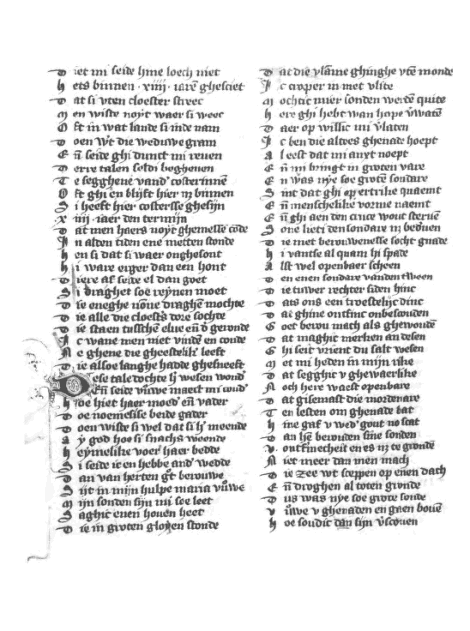 D iet mi seide hine loech niet
H ets binnen ·xiiij· iaren ghesciet
D at si vten cloester streec
M en wiste noyt waer si weec
O ft in wat lande si inde nam
D oen wert die weduwe gram
E n̄ seide ghi dunct mi reuen
D erre talen seldi begheuen
T e segghene vand' costerinnen
O ft ghi en blijft hier niet binnen
S i heeft hier costersse ghesijn
X iiij iaer den termijn
D at men haers noyt ghemesse conde
I n allen tiden ene metten stonde
H en si dat si waer onghesont
H i ware erger dan een hont
D iere af seide el dan goet
S i draghet soe reynen moet
D ie eneghe nonne draghen mochte
D ie alle die cloesters dore sochte
D ie staen tusschen elue en̄ d geronde
I c wane men niet vinden en conde
N e ghene die gheestelijc leeft
D ie alsoe langhe hadde ghesneeft
D ese tale dochte hr wesen wond'
E n̄ seide vrouwe maect mi cond'
H oe hiet haer moed' en̄ vader
D oe noemesise beide gader
D oen wiste si wel dat si hr meende
A y god hoe si snachs weende
H eymelike voer haer bedde
S i seide ic en hebbe and' wedde
D an van herten gr berouwe
S ijt in mijn hulpe maria vrouwe
M ijn sonden sijn mi soe leet
S aghic enen houen heet
D ie in groten gloyen stonde
D at die vlamme ghinghe vten monde
I c croper in met vlite
M ochtic mier sonden werden quite
H ere ghi hebt wan hope verwaten
D aer op willic mi verlaten
I c ben die altoes ghenade hoept
A l eest dat mi anxt noept
E n̄ mi bringt in groten vare
E n was nye soe groten sondare
S int dat ghi op ertrike quaemt
E n̄ menschelike vorme naemt
E n̄ ghi aen den cruce wout sterven
S one lieti den sondare niet bederuen
D ie met berouwenesse socht gnade
H i vantse al quam hi spade
A lst wel openbaer scheen
D en enen sondare vanden tween
D ie tuwer rechter siden hinc
D ats ons een troestelijc dinc
D at ghine ontfinc onbescouden
G oet berou mach als ghewouden
D at maghic merken an desen
G hi seit vrient du salt wesen
M et mi heden in mijn rike
D at segghic v ghewaerlike
N och here waest openbare
D at gisemast die mordenare
T en lesten om ghenade bat
H ine gaf v wed' gout no scat
D an hem berouden sine sonden
V ontfermecheit en es niet te gronden
N iet meer dan men mach
D ie zee wt sceppen op enen dach
E n̄ droghen al toten gronde
D us was nye soe grote sonde
V rouwe v ghenaden en gaen bouen
H oe soudic dan sijn verscouen